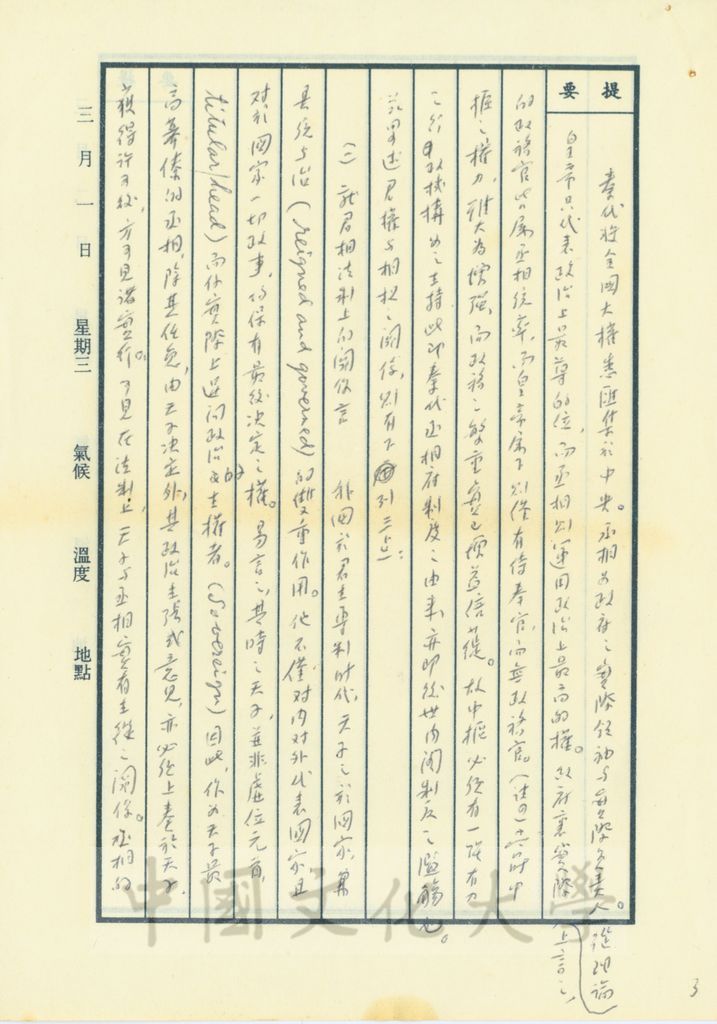 提要
秦代将全國大權悉匯集於中央。丞相為政府之實際領袖与實際負責人。從理論上言之，
皇帝只代表政治上最尊的位，而丞相則運用政治上最高的權。政府裏實際
的政務官皆屬丞相統率，而皇帝屬下則僅有侍奉官，而無政務官。（註一）當時中
樞之權力，雖大為增強，而政務之繁重實已增益倍蓰。故中樞必須有一強有力
之行政機構為之主持此即秦代丞相府制度之由來，亦即後世內閣制度之濫觴也。
茲略述君權与相权之關係，則有下列三点：
（一）就君相法制上的關係言 我國於君主專制时代，天子之於國家，兼
具統与治（reigned and governed）的雙重作用。他不僅对內对外代表國家，且
对於國家一切政事，仍保有最後决定之權。易言之，其時之天子，並非虛位元首，
（titular head）而係實際上過問政治的主權者。（Sovereign）因此，作為天子最
高幕僚的丞相，除其任免，由天子决定外，其政治主張或意見，亦必須上奏於天子，
獲得許可後，方可見諸實行。可見在法制上，天子与丞相實有主從之關係。丞相的
三月一日 星期三 氣候 溫度 地點
3
中國文化大學